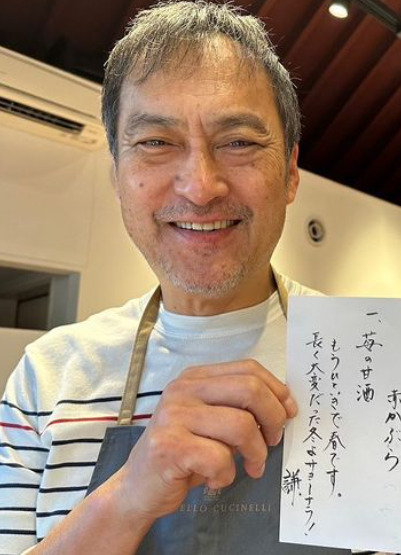 赤かぶら
一、苺の甘酒
もうひといきで春です。
長く大変だった冬よサヨーナラ!
謙
ELLO CUCINELLI